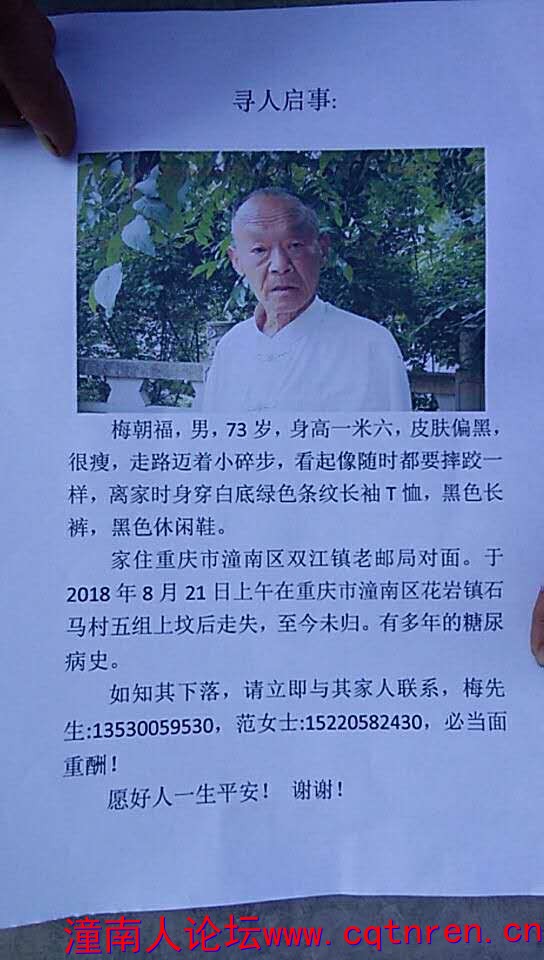 寻人启事:
梅朝福，男，73 岁，身高一米六，皮肤偏黑，
很瘦，走路迈着小碎步，看起像随时都要摔跤一
样，离家时身穿白底绿色条纹长袖 T 恤，黑色长
裤，黑色休闲鞋。
家住重庆市潼南区双江镇老邮局对面。于
2018 年 8 月 21 日上午在重庆市潼南区花岩镇石
马村五组上坟后走失，至今未归。有多年的糖尿
病史。
如知其下落，请立即与其家人联系，梅先
生:13530059530，范女士:15220582430，必当面
重酬！
愿好人一生平安！ 谢谢！
潼南人论坛www.cqtnren.cn